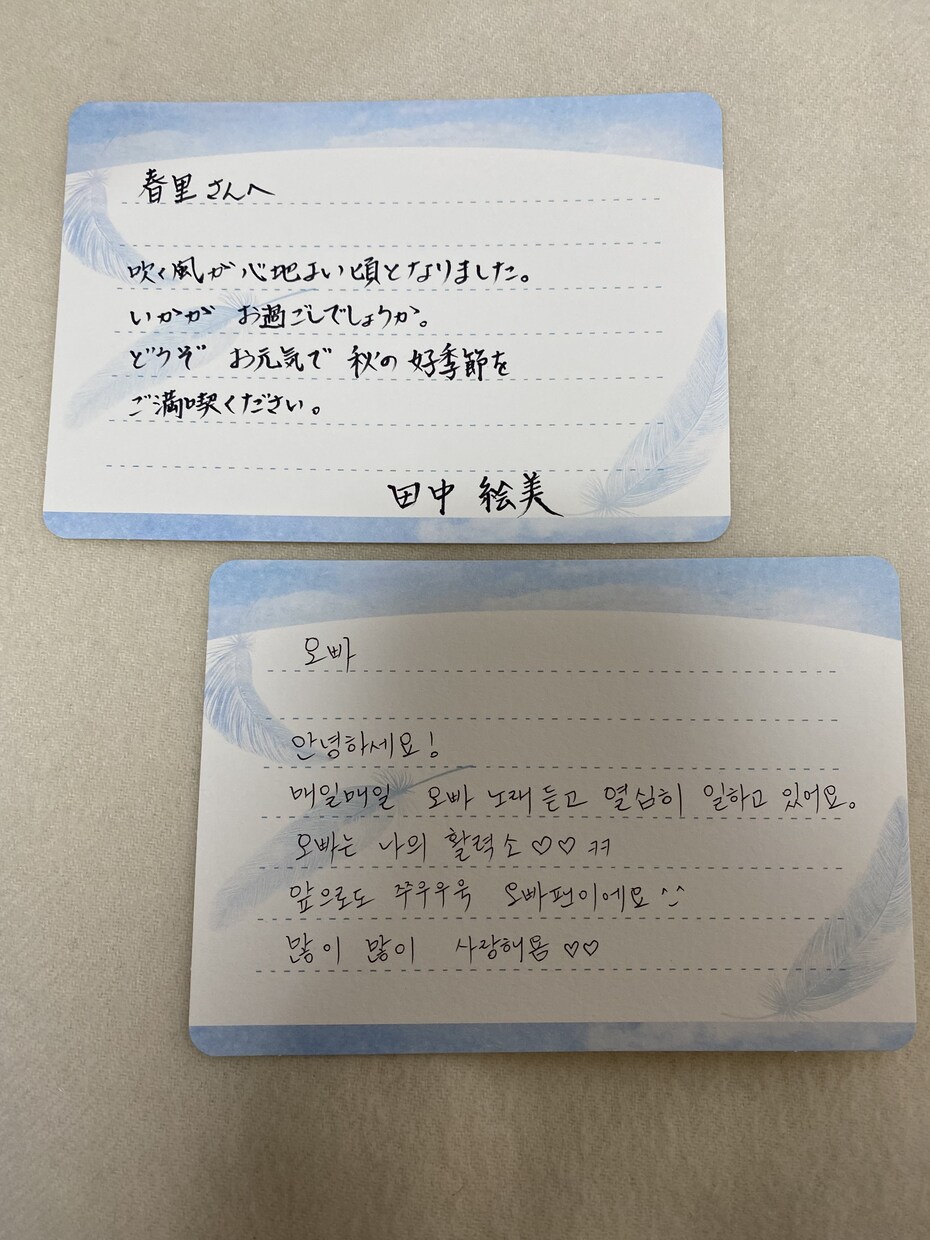 春里さんへ
吹く風が心地よい頃となりました。
いかが お過ごしでしょうか。
どうぞ お元気で 秋の好季節を
ご満喫ください。
田中 絵美
오빠
안녕하세요!
매일매일 오빠 노래 듣고 열심히 일하고 있어요.
오빠는 나의 활력소♡♡ ㅋㅋ
앞으로도 쭈우우욱 오빠편이에요^^
많이 많이 사랑해욤 ♡♡